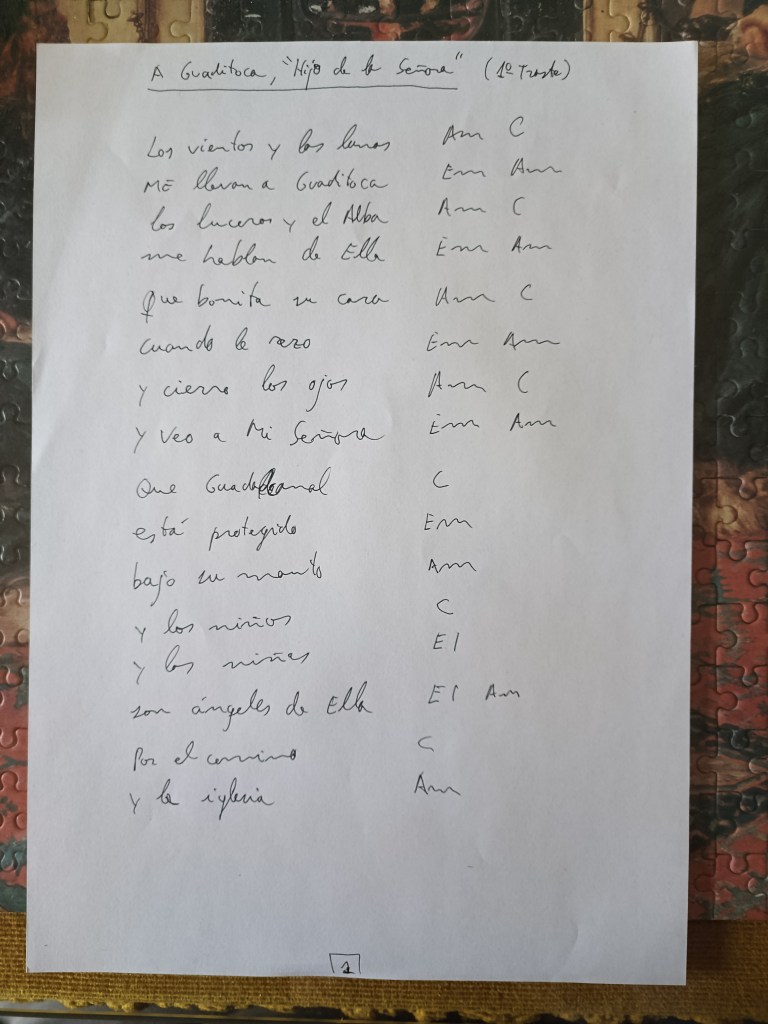 A Guaditoca, "Hijo de la Señora" (1º Traste)
Los vientos y las lunas Am C
ME llevan a Guaditoca Em Am
los luceros y el Alba Am C
me hablan de Ella Em Am
Que bonita su cara Am C
cuando le rezo Em Am
y cierro los ojos Am C
y veo a Mi Señora Em Am
Que Guadalcanal C
está protegido Em
bajo su manto Am
y los niños C
y las niñas E
son ángeles de Ella E Am
Por el camino C
y la iglesia Am
1